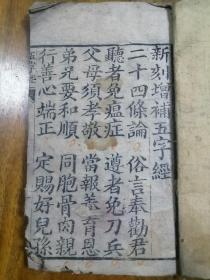 新刻增補五字經
二十四條論 俗言奉勸君
聽者免瘟症 遵者免刀兵
父母須孝敬 當報养育恩
弟兄要和順 同胞骨肉親
行善心端正 定賜好兒孫